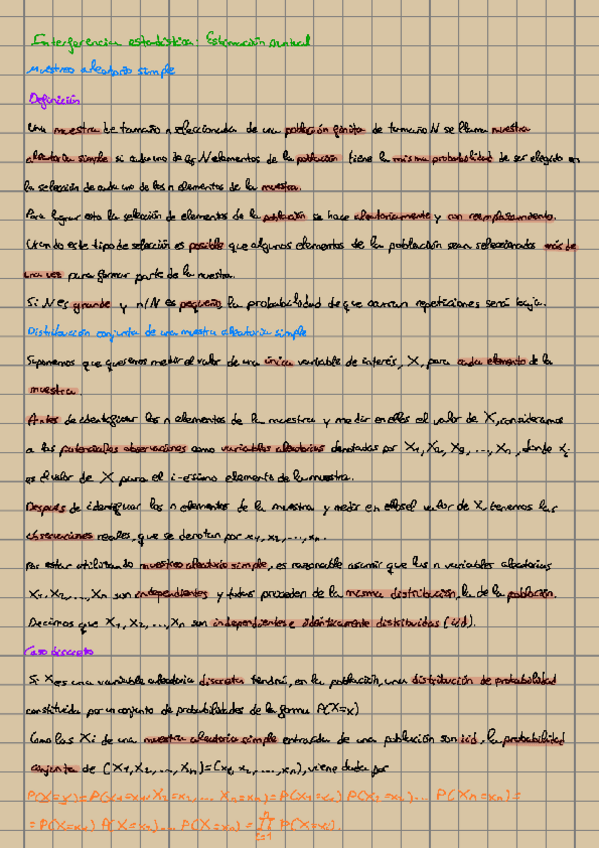 Interferencia estadística: Estimación puntual
Muestreo aleatorio simple
Definición
Una muestra de tamaño n seleccionada de una población finita de tamaño N se llama muestra
aleatoria simple si cada uno de los N elementos de la población tiene la misma probabilidad de ser elegido en
la selección de cada uno de los n elementos de la muestra.
Para lograr esto la selección de elementos de la población se hace aleatoriamente y con reemplazamiento.
Usando este tipo de selección es posible que algunos elementos de la población sean seleccionados más de
una vez para formar parte de la muestra.
Si N es grande y n/N es pequeño, la probabilidad de que ocurran repeticiones será baja.
Distribución conjunta de una muestra aleatoria simple
Suponemos que queremos medir el valor de una única variable de interés, X, para cada elemento de la
muestra.
Antes de identificar los n elementos de la muestra y medir en ellos el valor de X, consideramos
a las potenciales observaciones como variables aleatorias denotadas por X₁, X₂, X₃, ..., Xₙ, donde Xᵢ
es el valor de X para el i-ésimo elemento de la muestra.
Después de identificar los n elementos de la muestra y medir en ellos el valor de X, tenemos las
observaciones reales, que se denotan por x₁, x₂, ..., xₙ.
Por estar utilizando muestreo aleatorio simple, es razonable asumir que las n variables aleatorias
X₁, X₂, ..., Xₙ son independientes y todas proceden de la misma distribución, la de la población.
Decimos que X₁, X₂, ..., Xₙ son independientes e idénticamente distribuidas (iid).
Caso discreto
Si X es una variable aleatoria discreta tendrá, en la población, una distribución de probabilidad
constituida por un conjunto de probabilidades de la forma P(X=x)
Como las Xi de una muestra aleatoria simple extraída de una población son iid, la probabilidad
conjunta de (X₁, X₂, ..., Xₙ)=(x₁, x₂, ..., xₙ), viene dada por
P(X=x)=P(X₁=x₁, X₂=x₂, ... Xₙ=xₙ)=P(X₁=x₁) P(X₂=x₂)... P(Xₙ=xₙ)=
= P(X=x₁) P(X=x₂)... P(X=xₙ) = ∏ᵢ₌₁ⁿ P(X=xᵢ).